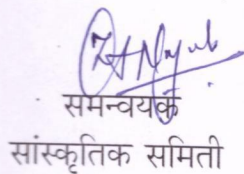 समन्वयक
सांस्कृतिक समिती